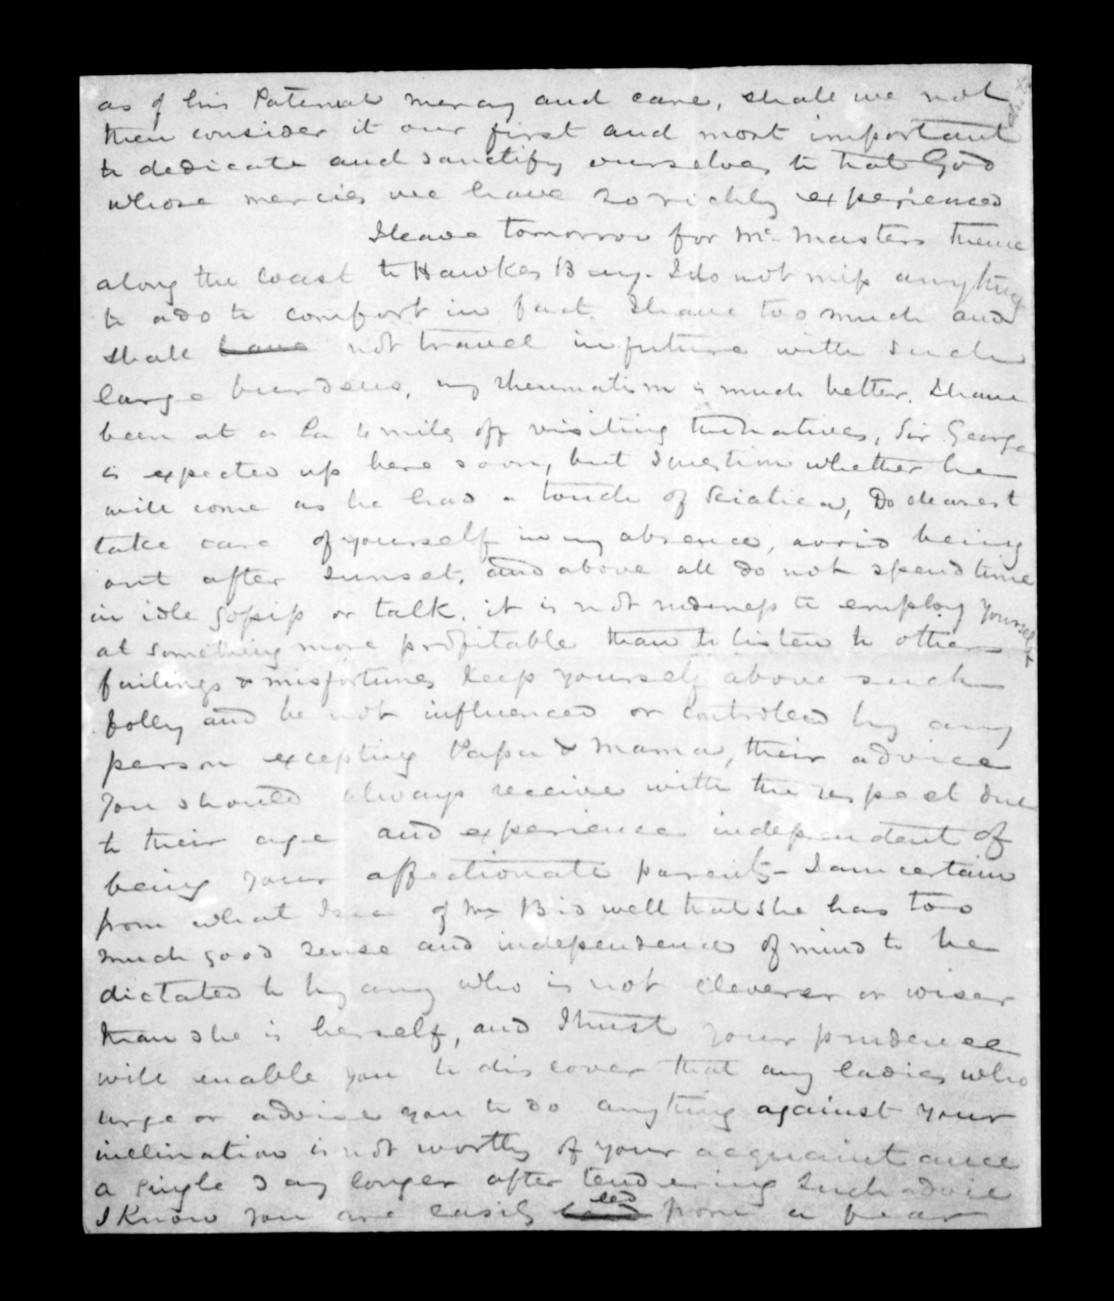 as of his Paternal mercy and care, shall we not
then consider it our first and most important
to dedicate and sanctify ourselves to that God
whose mercies we have so richly experienced
I leave tomorrow for Mc. Masters thence
along the Coast to Hawkes Bay. I do not miss anything
to add to comfort in fact I have too much and
shall have not travel in future with such
large burdens, my rheumatism is much better. I have
been at a Pa 6 miles off visiting the natives, Sir George
is expected up here soon, but I question whether he
will come as he had a touch of Sciatica, Do dearest
take care of yourself in my absence, avoid being
out after sunset, and above all do not spend time
in idle gossip or talk. it is not rudeness to employ yourself
at something more profitable than to listen to other
failings & misfortunes keep yourself above such
folly and be not influenced or controled by any
person excepting Papa & Mama, their advice
you should always receive with the respect due
to their age and experience independent of
being your affectionate parents - I am certain
from what I see of Mrs B is well that she has too
much good sense and independence of mind to be
dictated to by any who is not cleverer or wiser
than she is herself, and I trust your prudence
will enable you to discover that any ladies who
urge or advise you to do anything against your
inclination is not worthy of your acquaintance
a single day longer after tendering such advice
I know you are easily led from a fear